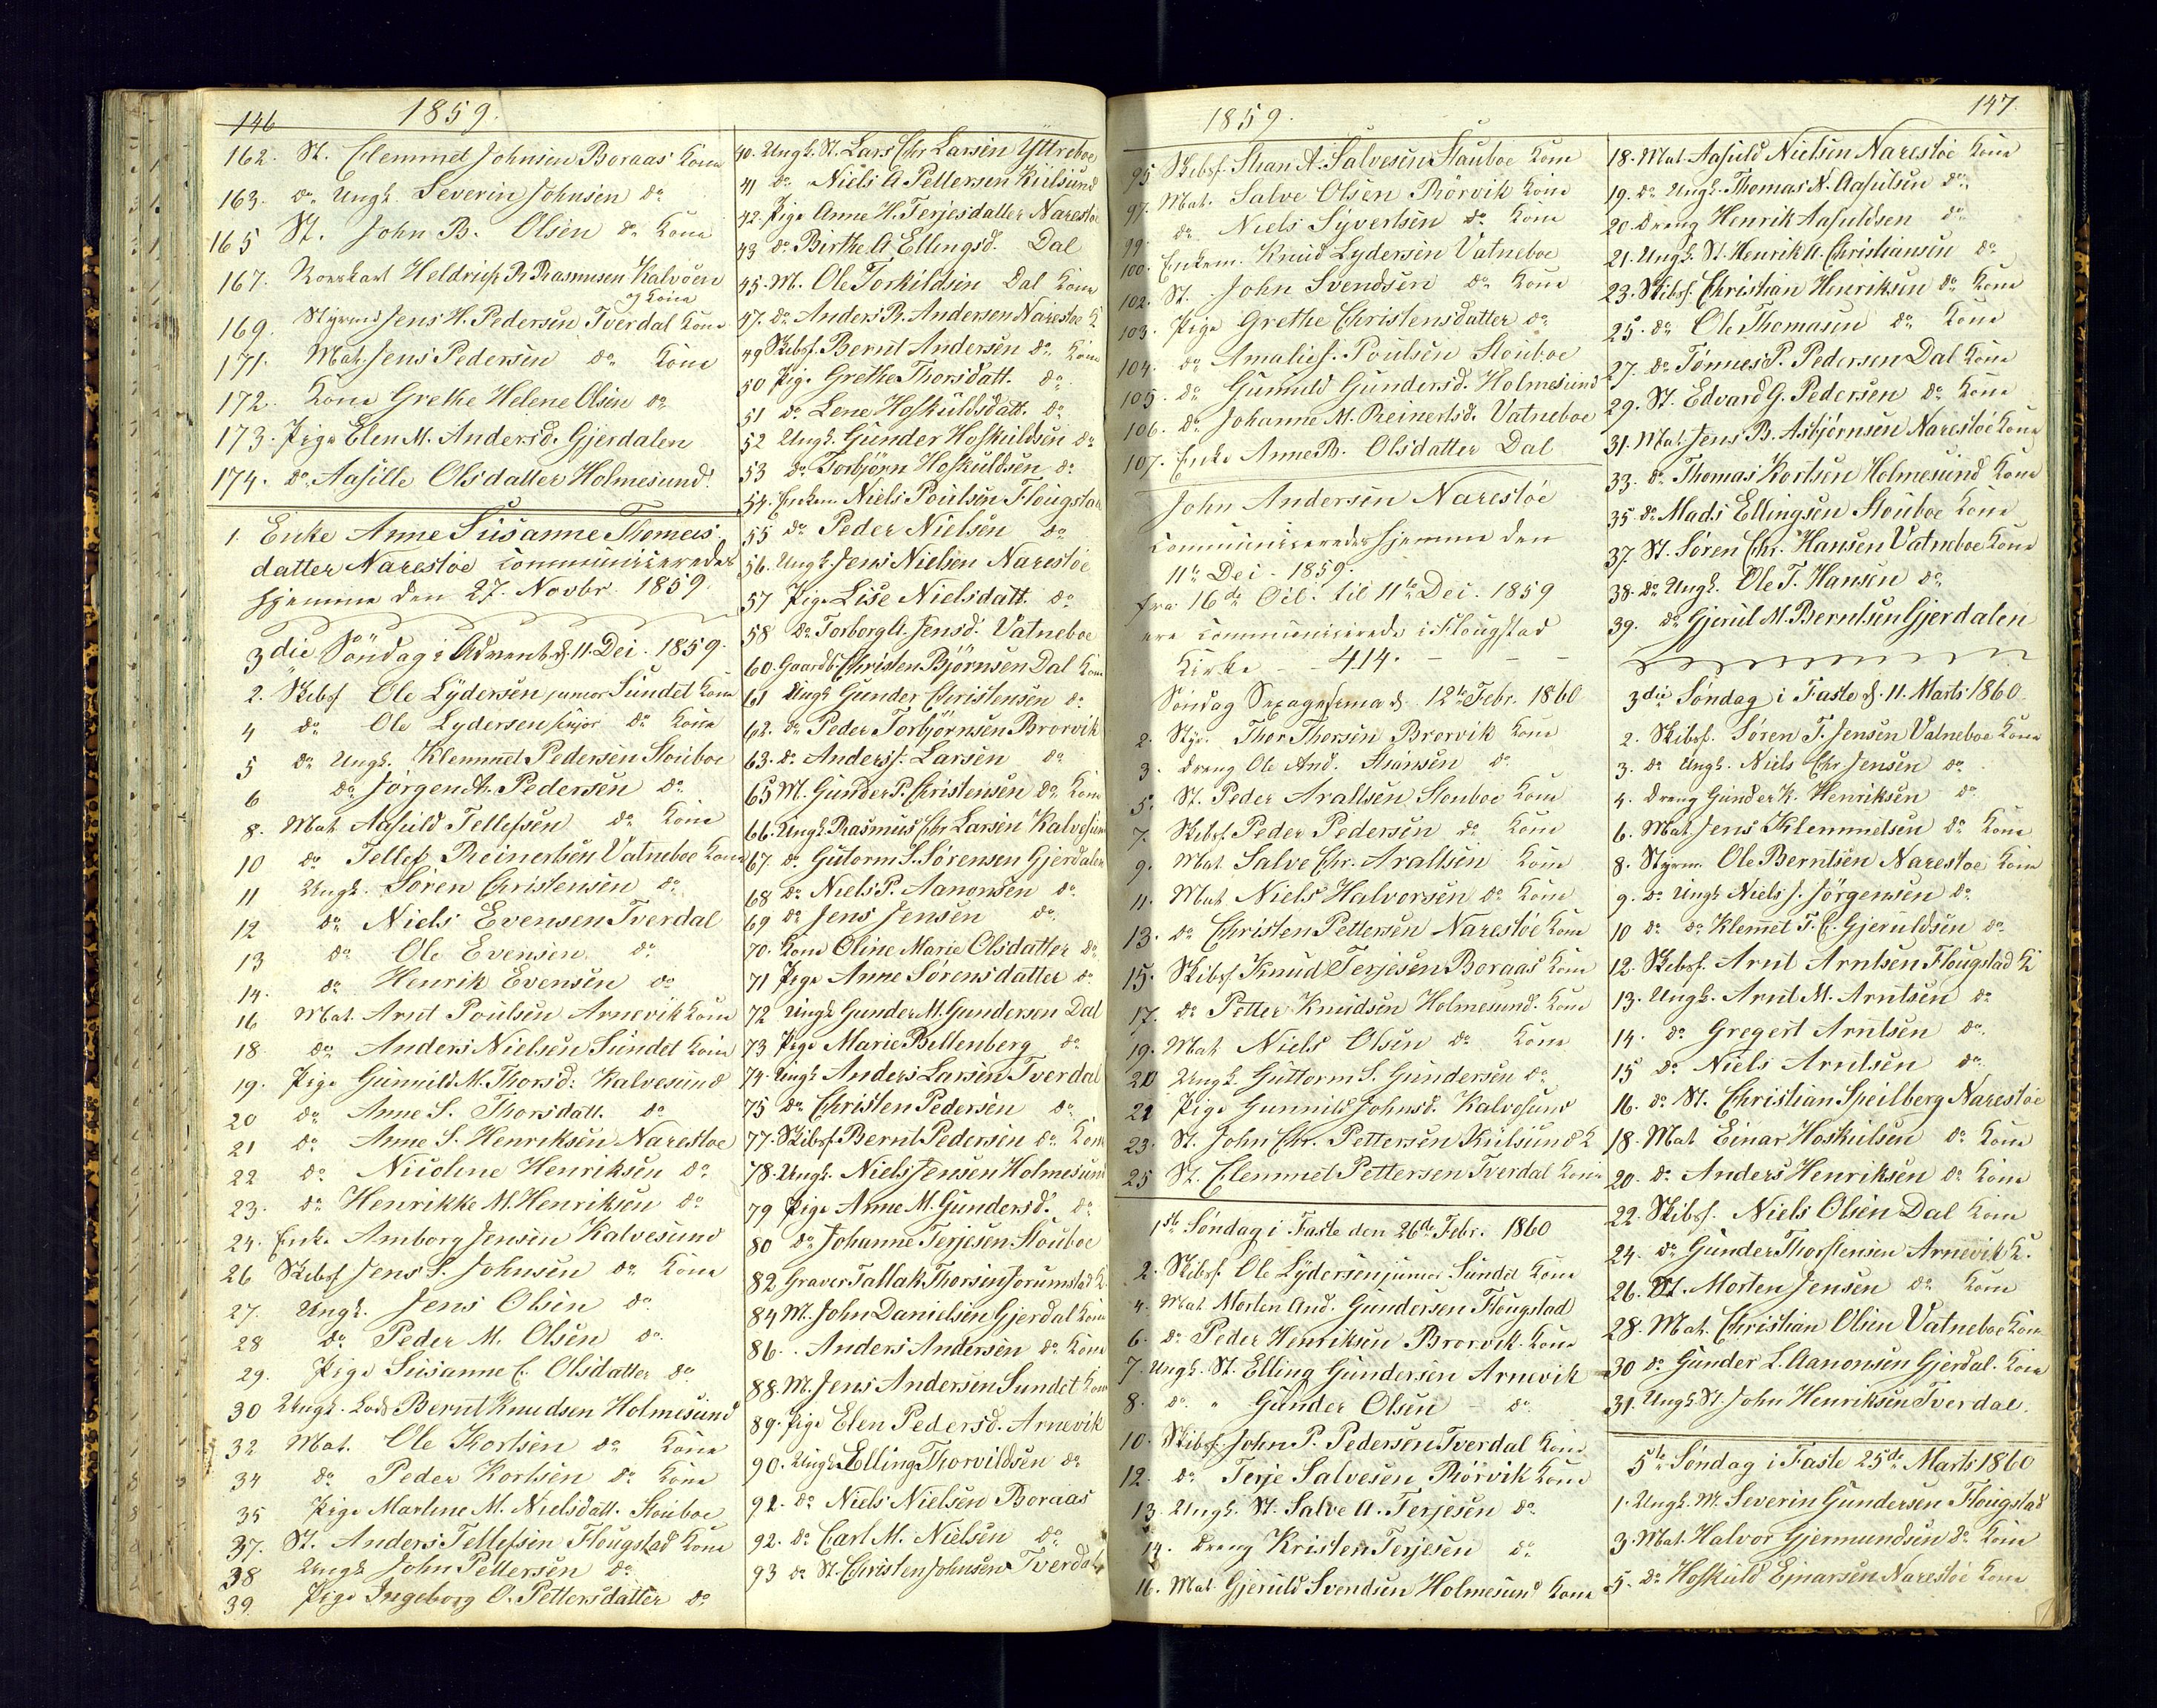 146
1859.
162. St. Clemmet Johnsen Boraas Kone
163. do Ungk. Severin Johnsen do
165 St. John B. Olsen do Kone
167. Heldrich R. Rasmusen Kalvöen
og Kone
169. Styrmd Jens H. Pedersen Tverdal Kone
171. Mat. Jens Pedersen do Kone
172. Kone Grethe Helene Olsen do
173. Pige Elen M. Andersd. Gjerdalen
174. do Aasille Olsdatter Holmesund.
1. Enke Anne Susanne Thomas
datter Narestöe communiceredes
hjemme den 27. Novbr. 1859
3die Söndag i Advent d. 11. Dec. 1859.
2. Skibsf Ole Lydersen junior Sundet Kone
4 do Ole Lydersen senior do Kone
5 do Ungk. Klemmet Pedersen Stouboe
6 do Jörgen A. Pedersen do
8. Mat Aasuld Tellefsen do Kone
10 do Tellef Reinertsen Vatneboe Kone
11 Ungk. Sören Christensen do
12 do Niels Evensen Tverdal
13 do Ole Evensen do
14. do Henrik Evensen do
16 Mat. Arnt Poulsen Arnevik Kone
18 do Anders Nielsen Sundet Kone
19. Pige Gunnild M. Thorsd: Kalvesund
20 do Anne S. Thorsdatt. do
21 do Anne S. Henriksen Narestöe
22 do Nicoline Henriksen do
23. do Henrikke M. Henriksen do
24. Enke Amborg Jensen Kalvesund
26 Skibsf Jens S. Johnsen do Kone
27. Ungk. Jens Olsen do
28 do Peder M. Olsen do
29. Pige Susanne C. Olsdatter do
30 Ungk. Lods Bernt Knudsen Holmesund
32 Mat. Ole Kortsen do Kone
34 do Peder Kortsen do Kone
35 Pige Marlene M. Nielsdatt. Stouboe
37. St. Anders Tellefsen Flougstad Kone
38 Ungk John Pettersen do
39. Pige Ingeborg O. Pettersdatter do
40. Ungk. St. Lars Chr Larsen Yttreboe
41 do Niels A Pettersen Kielsund
42. Pige Anne H. Terjesdatter Narestöe
43 do Birthe A Ellingsd. Dal
45. M. Ole Torkildsen Dal Kone
47. do Anders R. Andersen Narestöe K
49 Skibsf. Bernt Andersen do Kone
50 Pige Grethe Thorsdatt. do
51 do Lene Hofkuldsdatt. do
52 Ungk. Gunder Hofkuldsen do
53 do Torbjörn Hofkuldsen do
54. Enkem. Niels Poulsen Flougstad
55 do Peder Nielsen do
56. Ungk. Jens Nielsen Narestöe
57 Pige Lise Nielsdatt. do
58 do Torborg A. Jensd. Vatneboe
60. Gaardb. Christen Björnsen Dal Kone
61 Ungk Gunder Christensen do
62. do Peder Torbjörnsen Brorvik
63. do Anders J. Larsen do
65 M. Gunder P. Christensen do Kone
66. Ungk Rasmus Chr Larsen Kalvesund
67. do Gutorm S. Sörensen Gjerdalen
68 do Niels P. Aanonsen do
69 do Jens Jensen do
70. Kone Oline Marie Olsdatter do
71 Pige Anne Sörensdatter do
72 Ungk Gunder M. Gundersen Dal
73 Pige Marie Bellenberg do
74. Ungk Anders Larsen Tverdal
75 do Christen Pedersen do
77. Skibsf. Bernt Pedersen do Kone
78. Ungk. Niels Jensen Holmesund
79 Pige Anne M. Gundersd. do
80 do Johanne Terjesen Stouboe
82. Graver Tallak Thorsen Jorumstad K.
84 M. John Danielsen Gjerdal Kone
86. Anders Andersen do Kone
88. M. Jens Andersen Sundet Kone
89. Pige Elen Pedersd. Arnevik
90. Ungk Elling Thorvildsen do
91. do Niels Nielsen Boraas
92. do Carl M. Nielsen do
93 do St. Christen Johnsen Tverdal
1859.
147.
95 Skibsf. A. Salvesen Stauboe Kone
97. Mat. Salve Olsen Rörvik Kone
99. do Niels Syvertsen do Kone
100. Enkem. Knud Lydersen Vatneboe
102. St. John Svendsen do Kone
103. Pige Grethe Christensdatter do
104. do Amalie J. Poulsen Stouboe
105. do Gunnild Gundersd. Holmesund
106. do Johanne M. Reinertsd. Vatneboe
107. Enke Anne B. Olsdatter Dal
John Andersen Narestöe
communiceredes hjemme den
11te Dec. 1859.
fra 16de Oct. til 11te Dec. 1859
ere communicerede i Flougstad
Kirke - - 414. - - -
Söndag Sexagesima d. 12te Febr. 1860
2. Styr. Thor Thorsen Brorvik Kone
3. dreng Ole And. do
5. St. Peder Araltsen Stouboe Kone
7. Skibsf. Peder Pedersen do Kone
9. Mat Salve Chr. Araltsen Kone
11. Mat Niels Halvorsen do Kone
13. do Christen Pettersen Narestöe Kone
15. Skibsf Knud Terjesen Boraas Kone
17. do Petter Knudsen Holmesund. Kone
19. Mat Niels Olsen do Kone
20 Ungk. Guttorm S. Gundersen do
21 Pige Gunnild Johnsd. Kalvesund
23. St. John Chr. Pettersen Kielsund K
25 St. Clemmet Pettersen Tverdal Kone
1ste Söndag i Faste den 26de Febr. 1860
2. Skibsf. Ole Lydersen junior Sundet Kone
4. Mat Morten And. Gundersen Flougstad
6. do Peder Henriksen Brorvik. Kone
7. Ungk. St. Elling Gundersen Arnevik
8. do " Gunder Olsen - do
10. Skibsf. John P. Pedersen Tverdal Kone
12. do Terje Salvesen Rörvik Kone
13. Ungk. St. Salve A. Terjesen do
14. dreng Kristen Terjesen do
16. Mat. Gjeruld Svendsen Holmesund Kone
18. Mat. Aasuld Nielsen Narestöe Kone
19. do Ungk. Thomas N. Aasulsen do
20. dreng Henrik Aasuldsen do
21. Ungk. St. Henrik A. Christiansen do
23. Skibsf. Christian Henriksen do Kone
25. do Ole Thomasen do Kone
27. do Tönnes P. Pedersen Dal Kone
29. St. Edvard G. Pedersen do Kone
31. Mat. Jens B. Asbjörnsen Narestöe Kone
33. do Thomas Kortsen Holmesund Kone
35. do Mads Ellingsen Stouboe Kone
37. St. Sören Chr. Hansen Vatneboe Kone
38. do Ungk. Ole T. Hansen do
39. do Gjerul M. Berntsen Gjerdalen
3die Söndag i Faste d. 11. Marts 1860
2. Skibsf. Sören T. Jensen Vatneboe Kone
3. do Ungk. Niels Chr Jensen do
4. dreng Gunder K. Henriksen do
6. Mat Jens Klemmetsen do Kone
8. Styrm. Ole Berntsen Narestöe Kone
9. do Ungk Niels J. Jörgensen do
10 do do Klemet T. C. Gjeruldsen do
12. Skibsf. Arnt Arntsen Flougstad K
13. Ungk. Arnt M. Arntsen do
14. do Gregert Arntsen do
15 do Niels Arntsen do
16. do St. Christian Speilberg Narestöe
18. Mat Einar Hoskulsen do Kone
20. do Anders Henriksen do Kone
22. Skibsf. Niels Olsen Dal Kone
24. do Gunder Thorstensen Arnevik K.
26. St. Morten Jensen do Kone
28. Mat. Christian Olsen Vatneboe Kone
30 do Gunder L. Aanonsen Gjerdal. Kone
31. Ungk. St. John Henriksen Tverdal.
5te Söndag i Faste 25de Marts 1860
1. Ungk. M. Severin Gundersen Flougstad
3. Mat. Halvor Gjermundsen do Kone
5. do Hofkuld Ejnarsen Narestöe Kone